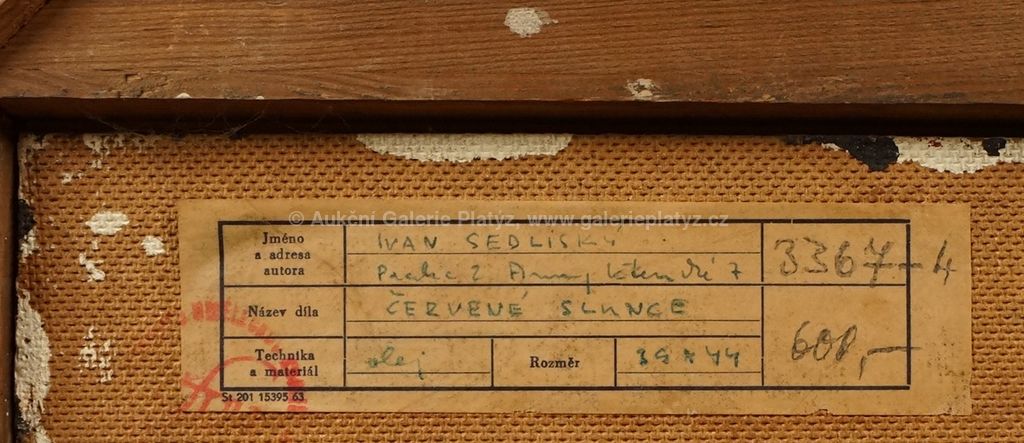 © Aukční Galerie Platýz, www.galerieplatyz.cz
Jméno
a adresa
autora
IVAN SEDLISKÝ
Praha 2 Anny Letenské 7
3367-4
Název díla
ČERVENÉ SLUNCE
600,—
Technika
a materiál
olej
Rozměr
39 x 44
St 201 15395 63